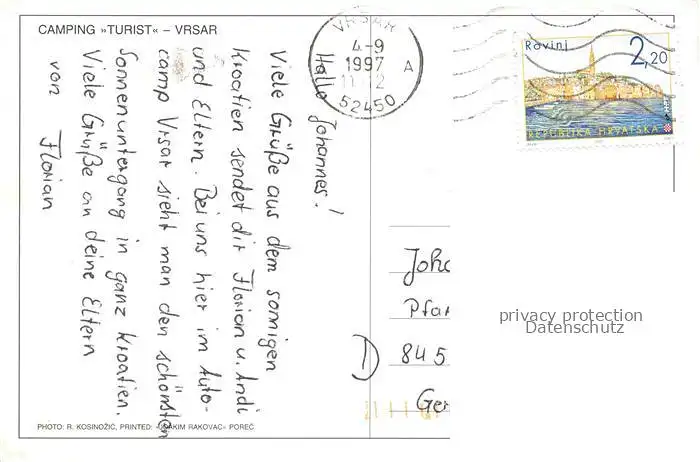 CAMPING »TURIST« – VRSAR
Hallo Johannes!
Viele Grüße aus dem sonnigen
Kroatien sendet dir Florian u. Andi
und Eltern. Bei uns hier im Auto-
camp Vrsar sieht man den schönsten
Sonnenuntergang in ganz Kroatien.
Viele Grüße an deine Eltern
von Florian
PHOTO: R. KOSINOŽIĆ, PRINTED: »JOAKIM RAKOVAC« POREČ
VRSAR
4-9
1997 A
52450
Rovinj
2,20
REPUBLIKA HRVATSKA
D
Joha
Pfar
845
Ger
privacy protection
Datenschutz